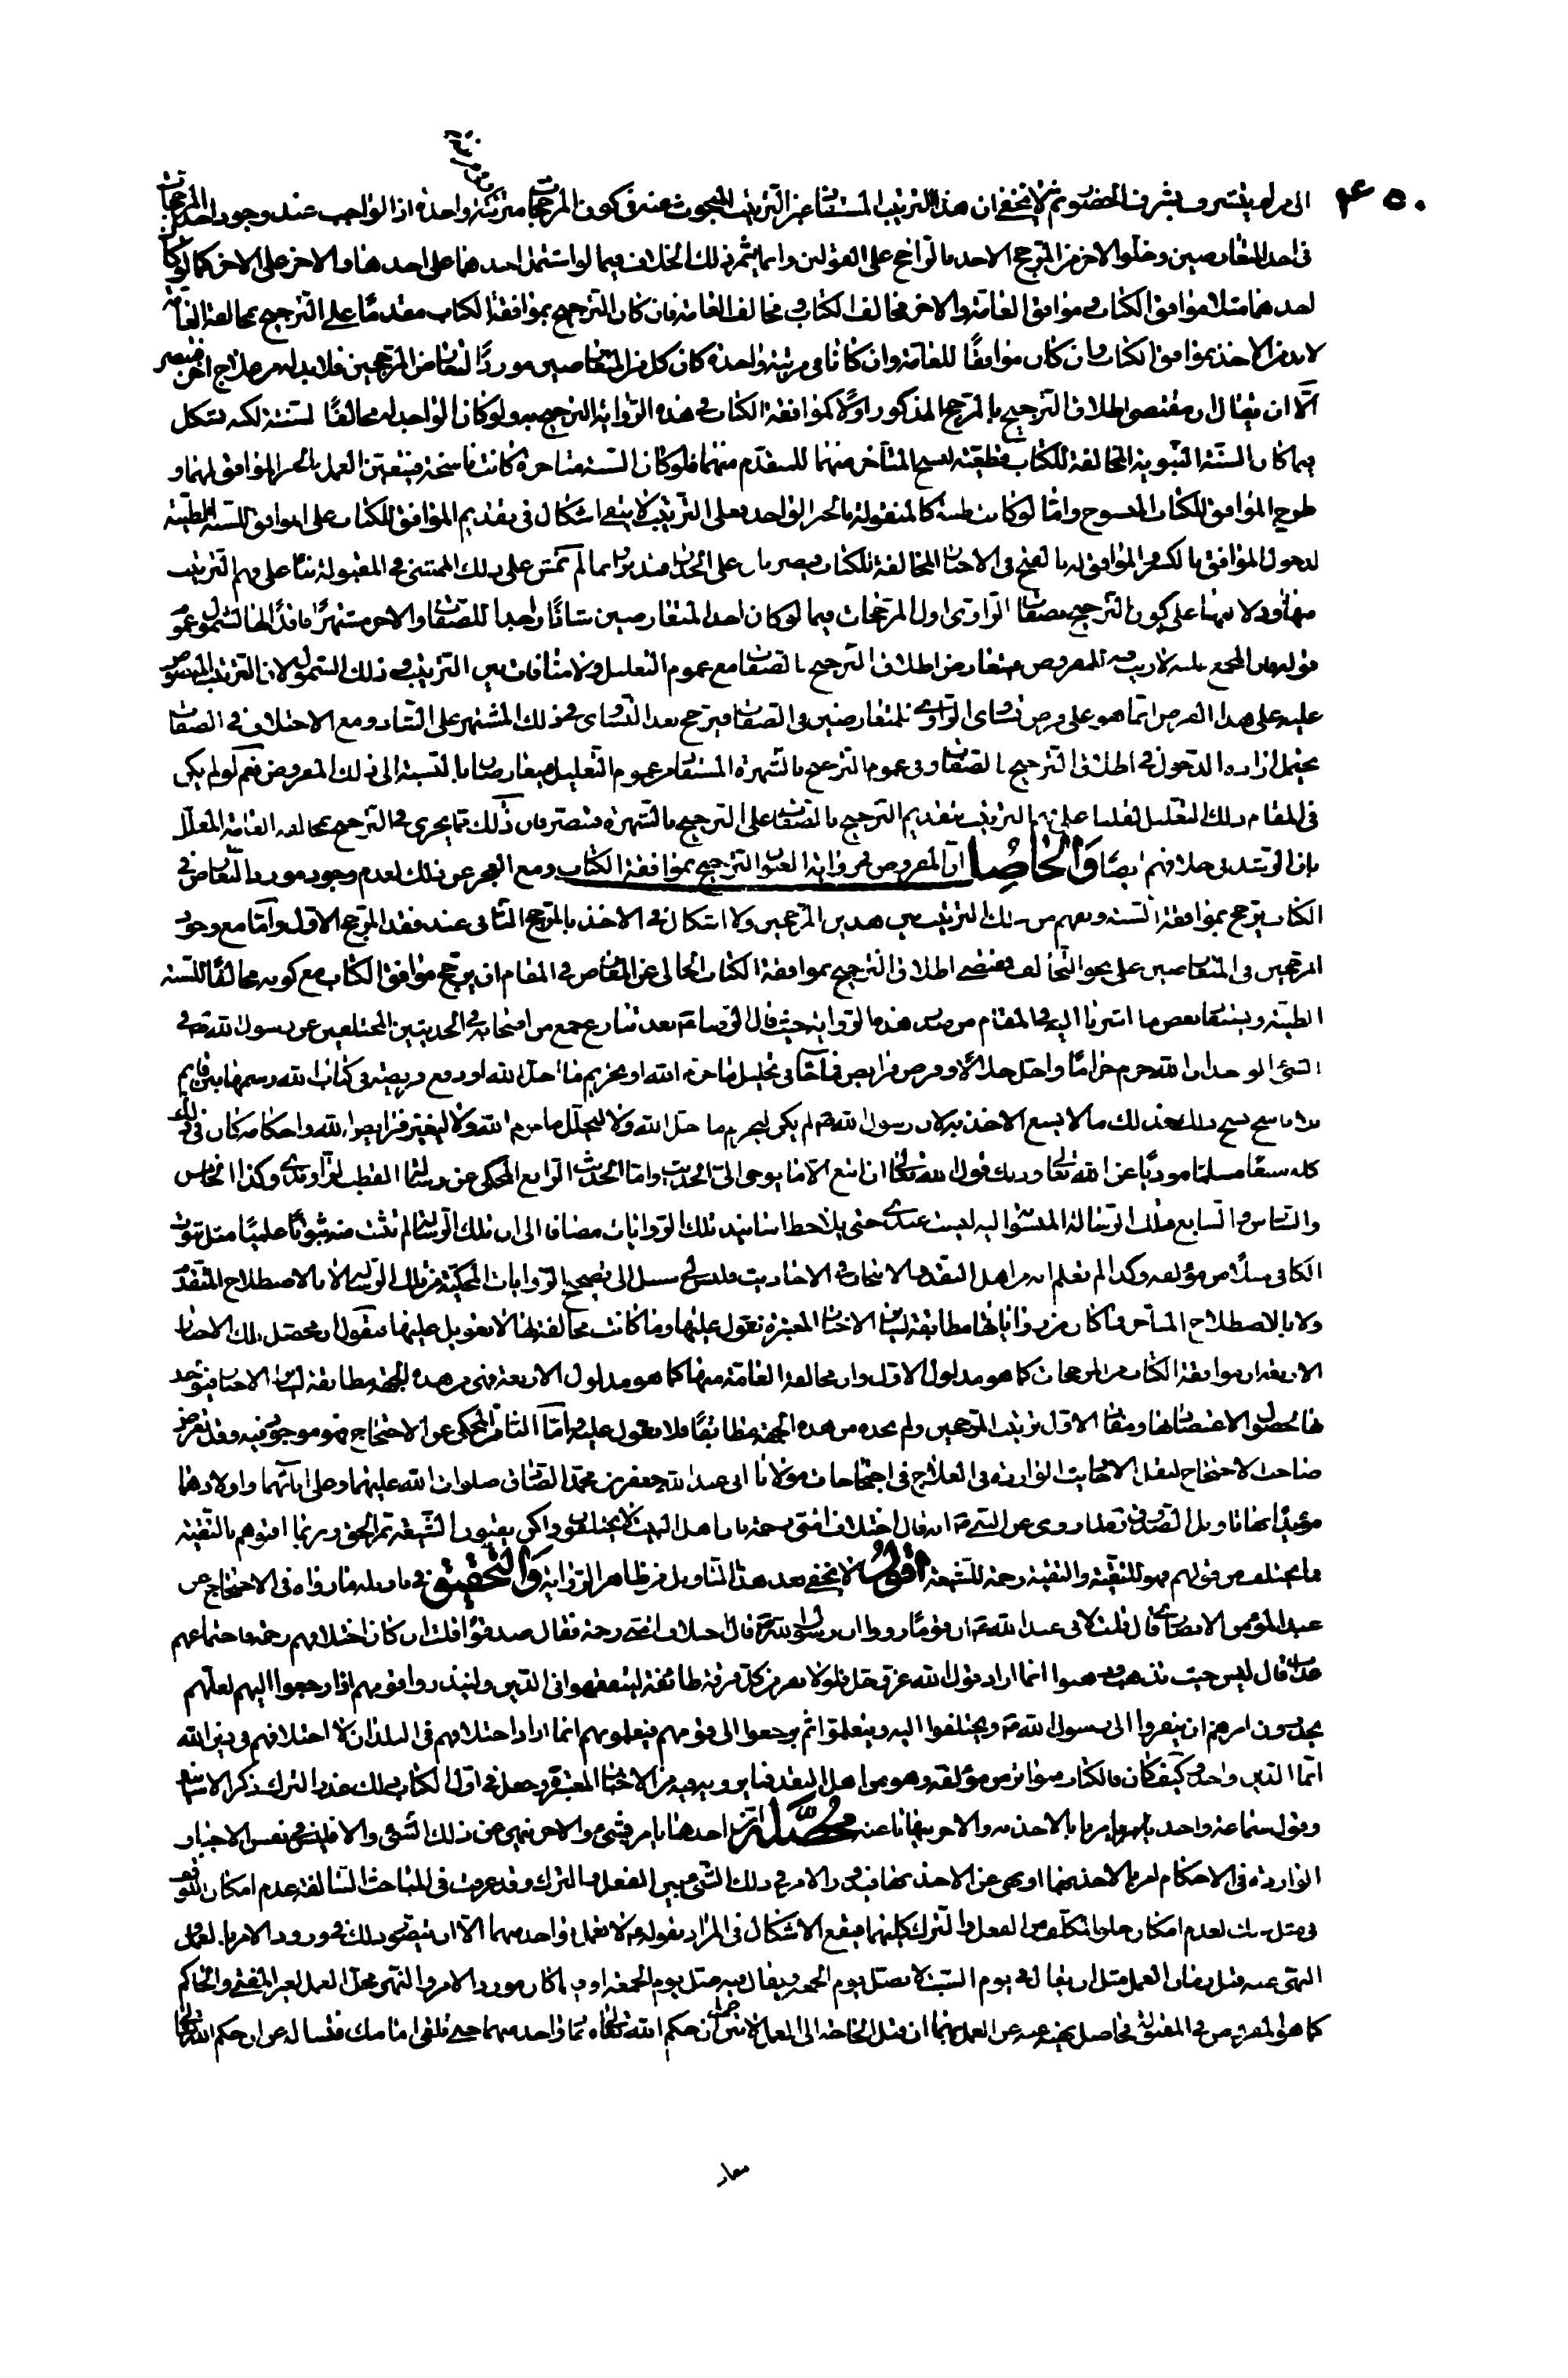 ٤٥٠
الى من لم يتشرف بشرف الحضور ثم لا يخفى ان هذا الترتيب المستفاد غير الترتيب المبحوث عنه في كون المرجحات مترتبة واحدة اذ الواجب عند وجود احد المرجحات
في احد المتعارضين وخلو الاخر من المرجح الاخذ بالراجح على القولين وانما يثمر ذلك الخلاف فيما لو اشتمل احدهما على احدها والاخر على الاخر كما لو كان
احدهما مثلا موافق الكتاب وموافق العامة والاخر مخالف الكتاب ومخالف العامة فان كان الترجيح بموافقة الكتاب مقدما على الترجيح بمخالفة العامة
لابد من الاخذ بموافق الكتاب وان كان موافقا للعامة وان كانا في مرتبة واحدة كان كل من المتعارضين موردا لتعارض المرجحين فلابد له من علاج اخر
الا ان يقال ان مقتضى اطلاق الترجيح بالمرجح المذكور اولا كموافقة الكتاب في هذه الرواية الترجيح به ولو كان الواجد له مخالفا لسنة لكنه يشكل
فيما كان السنة النبوية المخالفة للكتاب قطعية لنسخ المتاخر منهما للمتقدم منهما فلو كان السنة متاخرة كانت ناسخة فيتعين العمل بالخبر الموافق لها و
طرح الموافق للكتاب المنسوخ واما لو كانت ظنية كالمنقولة بالخبر الواحد فعلى الترتيب لا يبقى اشكال في تقديم الموافق للكتاب على الموافق للسنة الظنية
لدخول الموافق بالكسر والموافق له بالفتح في الاخبار المخالفة للكتاب
منها ودلالتها على كون الترجيح بصفات الراوي اول المرجحات فيما لو كان احد المتعارضين شاذا واجدا للصفات والاخر مشتهرا فاقدا لها لشمول عموم
قوله فان المجمع عليه لا ريب فيه المعروض فيتعارض اطلاق الترجيح بالصفات مع عموم التعليل ولا منافات بين الترتيب وذلك الشمول لان الترتيب المنصوص
عليه على هذا الفرض انما هو على فرض تساوى الراويين للمتعارضين في الصفات فيرجح بعد التساوى في ذلك المشتهر على الشاذ ومع الاختلاف في الصفات
يحتمل ارادة الدخول في اطلاق الترجيح بالصفات وفي عموم الترجيح بالشهرة المستفاد من عموم التعليل فيتعارضان بالنسبة الى ذلك المعروض نعم لو لم يكن
في المقام ذلك التعليل لقلنا على فهم الترتيب بتقديم الترجيح بالصفات على الترجيح بالشهرة فتبصر فان ذلك مما يجرى في الترجيح بمخالفة العامة المعلل
بان الرشد في خلافهم ايضا والحاصل ان المعروض في رواية العيون الترجيح بموافقة الكتاب ومع العجز عن ذلك لعدم وجود مورد التعارض في
الكتاب يرجح بموافقة السنة ويفهم من ذلك الترتيب بين هذين المرجحين ولا اشكال في الاخذ بالمرجح الثاني عند فقد المرجح الاول واما مع وجود
المرجحين في المتعارضين على نحو التخالف فمقتضى اطلاق الترجيح بموافقة الكتاب الخالي عن المعارض في المقام ان يرجح موافق الكتاب مع كونه مخالفا للسنة
الظنية ويستفاد بعض ما اشرنا اليه في المقام من صدر هذه الرواية حيث قال الرضا ع بعد تنازع جمع من اصحابه في الحديثين المختلفين عن رسول الله ص في
الشيء الواحد ان الله حرم حراما واحل حلالا وفرض فرائض فما جاء في تحليل ما حرم الله او تحريم ما احل الله او دفع فريضة في كتاب الله رسمها بين قائم
بلا ناسخ نسخ ذلك فذلك ما لا يسع الاخذ به لان رسول الله ص لم يكن ليحرم ما احل الله ولا ليحلل ما حرم الله ولا ليغير فرائض الله واحكامه كان في ذلك
كله متبعا مسلما مؤديا عن الله تعالى وذلك قول الله تعالى ان اتبع الا ما يوحى الى الحديث واما الحديث الرابع المحكي عن رسالة القطب الراوندى وكذا الخامس
والسادس والسابع فتلك الرسالة المنسوبة اليه ليست عندى حتى يلاحظ اسانيد تلك الروايات مضافا الى ان تلك الرسالة لم تثبت منه ثبوتا علميا مثل ثبوت
الكافي مثلا من مؤلفه وكذا لم نعلم انه من اهل النقد والانتخاب في الاحاديث فليس لى سبيل الى تصحيح الروايات المحكية من تلك الرسالة لا بالاصطلاح المتقدم
ولا بالاصطلاح المتاخر فما كان من رواياتها مطابقة لسائر الاخبار المعتبرة نعول عليها وما كانت مخالفة لها لا تعويل عليها فنقول ان محصل تلك الاخبار
الاربعة ان موافقة الكتاب من المرجحات كما هو مدلول الاول وان مخالفة العامة منها كما هو مدلول الاربعة فهي من هذه الجهة مطابقة لسائر الاخبار فيؤخذ
بها لحصول الاعتضاد لها ومفاد الاول ترتيب المرجحين ولم نجده من هذه الجهة مطابقا فلا نعول عليه واما الثامن المحكي عن الاحتجاج فهو موجود فيه وقد تعرض
صاحب الاحتجاج لنقل الاحاديث الواردة في العلاج في احتجاجات مولانا ابى عبد الله جعفر بن محمد الصادق صلوات الله عليهما وعلى ابائهما واولادهما
مؤيدا بها تاويل الصدوق بعد ما روى عن النبي ص انه قال اختلاف امتى رحمة بان اهل البيت لا يختلفون ولكن يفتون الشيعة بمر الحق وربما افتوهم بالتقية
فما يختلف من قولهم فهو للتقية والتقية رحمة للشيعة اقول لا يخفى بعد هذا التاويل من ظاهر الرواية والتحقيق في تاويله ما رواه في الاحتجاج عن
عبد المؤمن الانصارى قال قلت لابى عبد الله ع ان قوما رووا ان رسول الله ص قال اختلاف امتى رحمة فقال صدقوا قلت ان كان اختلافهم رحمة فاجتماعهم
عذاب قال ليس حيث تذهب وذهبوا انما اراد قول الله عز وجل فلولا نفر من كل فرقة طائفة ليتفقهوا في الدين ولينذروا قومهم اذا رجعوا اليهم لعلهم
يحذرون امرهم ان ينفروا الى رسول الله ص ويختلفوا اليه ويتعلموا ثم يرجعوا الى قومهم فيعلموهم انما اراد اختلافهم في البلدان لا اختلافهم في دين الله
انما الدين واحد وكيف كان فالكتاب متواتر من مؤلفه وهو من اهل النقد فما يرويه فيه من الاخبار المعتبرة وجعل في اول الكتاب ذلك عذر الترك ذكر الاسانيد
وقول سماعة واحد يامرنا بالاخذ به والاخر ينهانا عنه محصله ان احدهما يامر بشيء والاخر نهى عن ذلك الشيء والا فليس في نفس الاخبار
الواردة في الاحكام امر بالاخذ بها او نهى عن الاخذ بها فيدور الامر في ذلك الشيء بين الفعل والترك وقد عرفت في المباحث السالفة عدم امكان التوقف
في مثل ذلك لعدم امكان خلو المكلف من الفعل والترك كليهما فيقع الاشكال في المراد بقوله ع لا تعمل بواحد منهما الا ان يتصور ذلك في ورود الامر بالعمل
المنهى عنه قبل زمان العمل مثل ان يقال في يوم السبت لا تصل يوم الجمعة ويقال فيه صل يوم الجمعة او
كما هو المعروض في المقبولة
معار